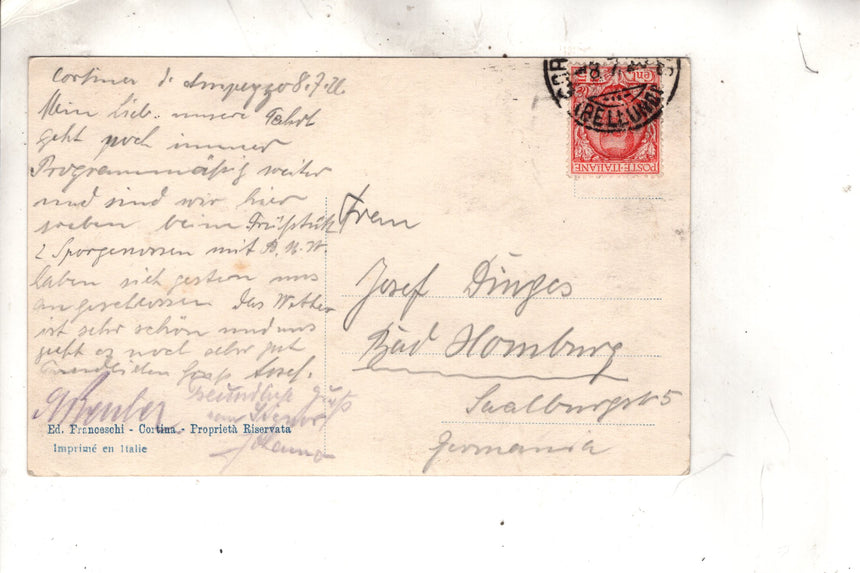 Cortina d. Ampezzo 8.7.
Mein Lieb. unsere Fahrt
geht noch immer
Programmmäßig weiter
und sind wir hier
soeben beim Frühstük
2 Sporgenossen mit B.M.W.
haben sich gestern uns
angeschlossen das Wetter
ist sehr schön und uns
geht es noch sehr gut
Gruß Josef.
Freundliche Grüße
Frau
Josef Dinges
Bad Homburg
Saalburgstr 5
Germania
Ed. Franceschi - Cortina - Proprietà Riservata
Imprimé en Italie
POSTE·ITALIANE
(BELLUNO)